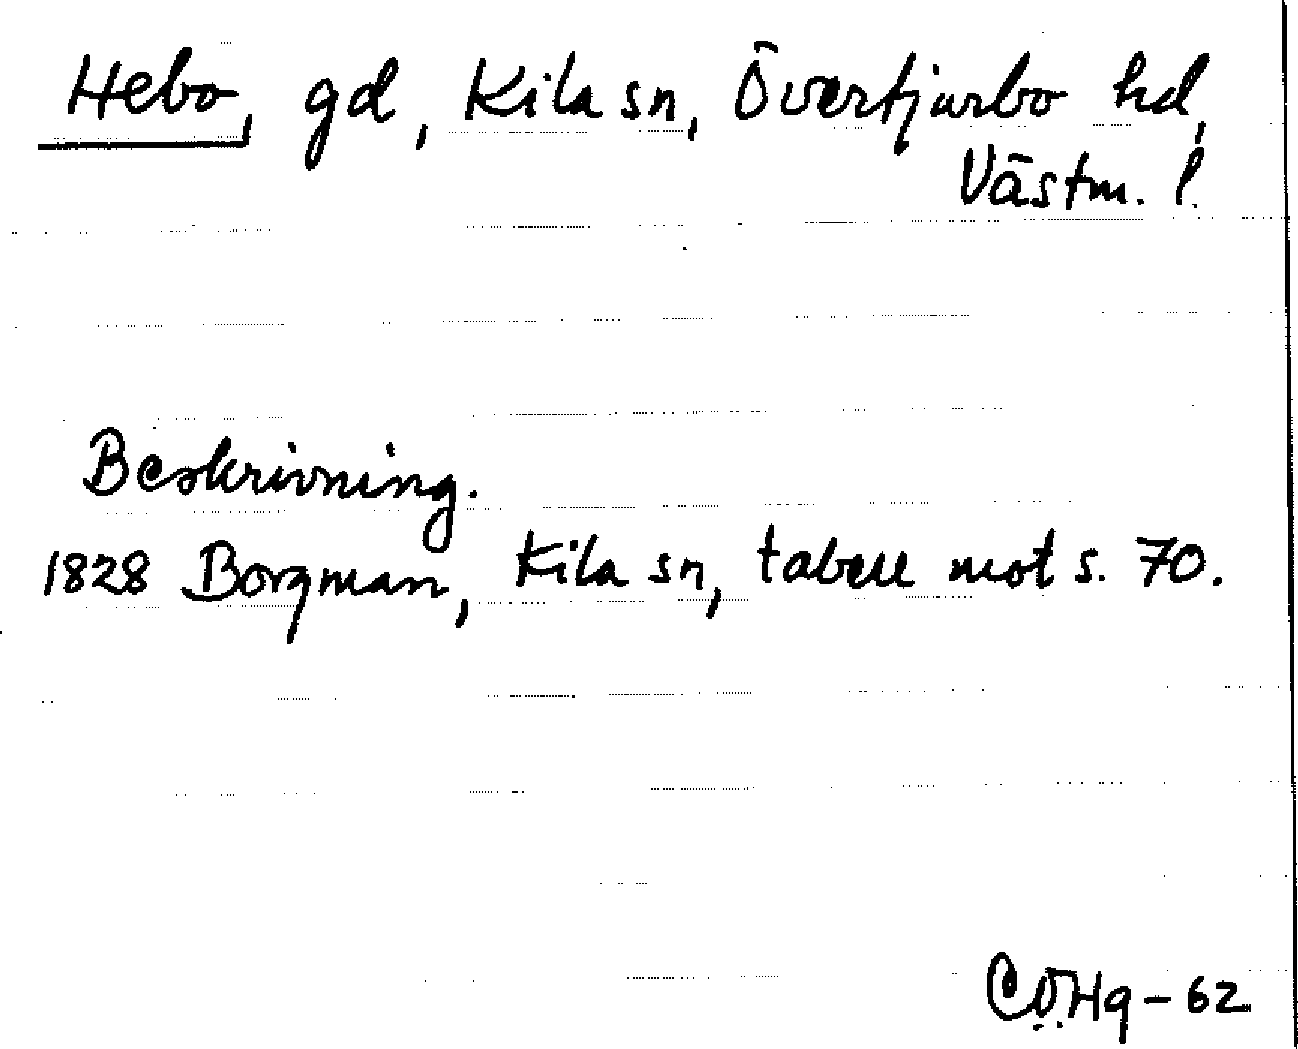 Hebo, gd, Kila sn, Övertjurbo hd,
Västm. l.
Beskrivning.
1828 Borgman, Kila sn, tabell mot s. 70.
CÖHg-62